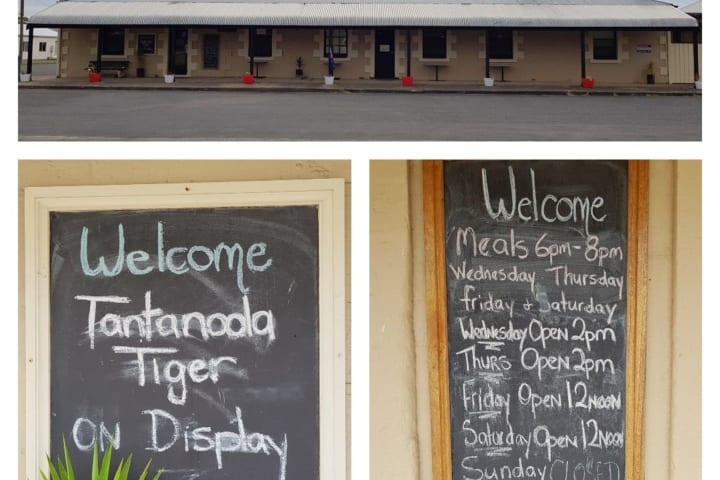 Welcome
Tantanoola
Tiger
ON Display
Welcome
Meals 6pm-8pm
Wednesday Thursday
friday & Saturday
Wednesday Open 2pm
Thurs Open 2pm
Friday Open 12NOON
Saturday Open 12NOON
Sunday CLOSED